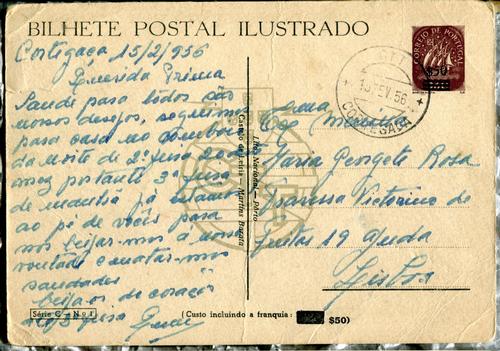 BILHETE POSTAL ILUSTRADO
Cortegaça 15/2/956
Querida Prima
Saude para todos são
nossos desejos, seguimos
para casa no comboio
da noite de 2ª feira 20 do
mez portanto 3ª feira
de manhã já estamos
ao pé de vocês para
nos beijar-mos á nossa
vontade e matar-mos
saudades
beijos de coração
CORREIO DE PORTUGAL
$50
CTT
15 FEV. 56
CORTEGAÇA
Exma
Menina
Maria Georgete Rosa
Travessa Victorino de
Freitas 19 Ajuda
Lisboa
Castelo de Leiria - Martins Barata
Lito Nacional - Pôrto
Série C - N.º 1
(Custo incluindo a franquia : $50)